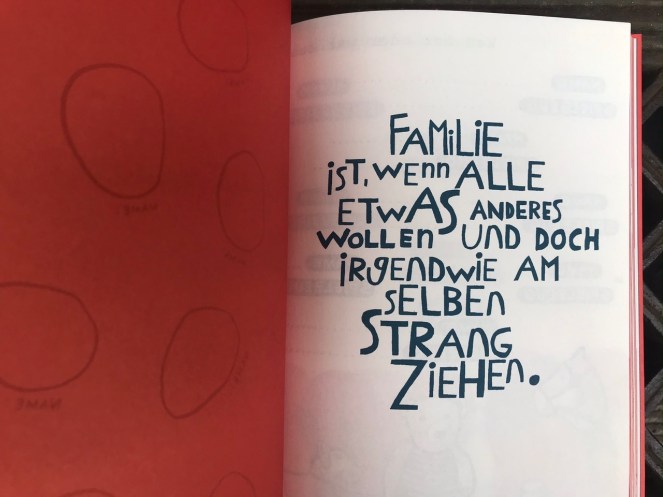 FAMiLiE
iST, WEnn ALLE
ETWAS ANDERES
WOLLEn UND DOCH
iRgENDWiE AM
SELBEn
STRANG
ZiEHEn.